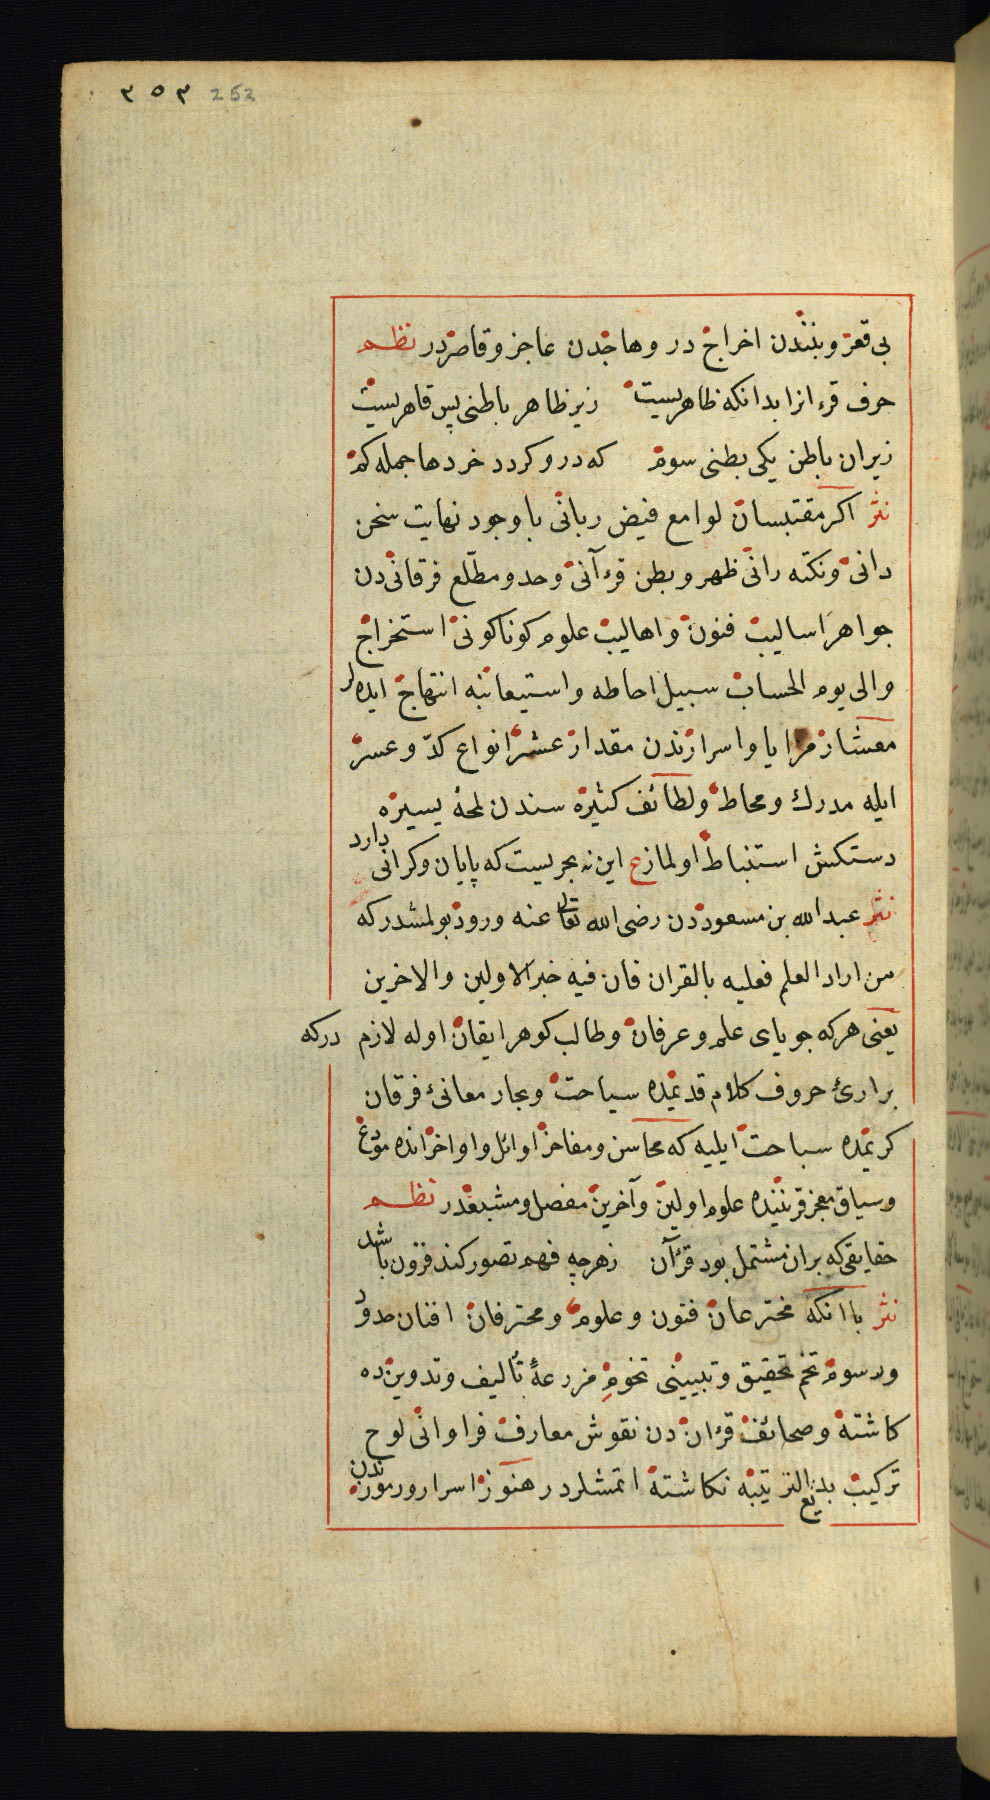 ۲۵۳ 252
بی قعر و بنندن اخراج در و هاجدن عاجز و قاصردر نظم
حرف قرءانرا بدانکه ظاهریست زیر ظاهر باطنی پس قاهریست
زیر ان باطن یکی بطنی سوم که در و کردد خردها جمله کم
نثر اکر مقتبسان لوامع فیض ربانی با وجود نهایت سخن
دانی و نکته رانی ظهر و بطن قرءآنی وحد و مطلع فرقانی دن
جواهر اسالیب فنون و اهالیب علوم کوناکونی استخراج
والی یوم الحساب سبیل احاطه و استیعابنه انتهاج ایده لر
معشار مزایا و اسرارندن مقدار عشر انواع کدّ و عسر
ایله مدرك و محاط و لطائف کثیره سندن لمحهٔ یسیره
دستکش استنباط اولماز ع این نه بحریست که پایان و کرانی دارد
نثر عبد الله بن مسعوددن رضی الله تعالی عنه ورود بولمشدر که
من اراد العلم فعلیه بالقران فان فیه خبر الاولین والاخرین
یعنی هر که جویای علم و عرفان و طالب کوهر ایقان اوله لازم درکه
براریٔ حروف کلام قدیمده سیاحت و بحار معانیٔ فرقان
کریمده سباحت ایلیه که محاسن و مفاخر اوائل و اواخر انده مودع
و سیاق معجز قریننده علوم اولین و آخرین مفصل و مشبعدر نظم
حقایقی که بران مشتمل بود قرآن زهرچه فهم تصور کند فزون باشد
نثر با انکه مخترعان فنون و علوم و محترفان افنان حدود
و رسوم تخم تحقیق و تبیینی تخوم مزرعهٔ تألیف و تدوین ده
کاشته و صحائف قرءان دن نقوش معارف فراوانی لوح
ترکیب بدیع الترتیبه نکاشته اتمشلردر هنوز اسرار و رموزندن